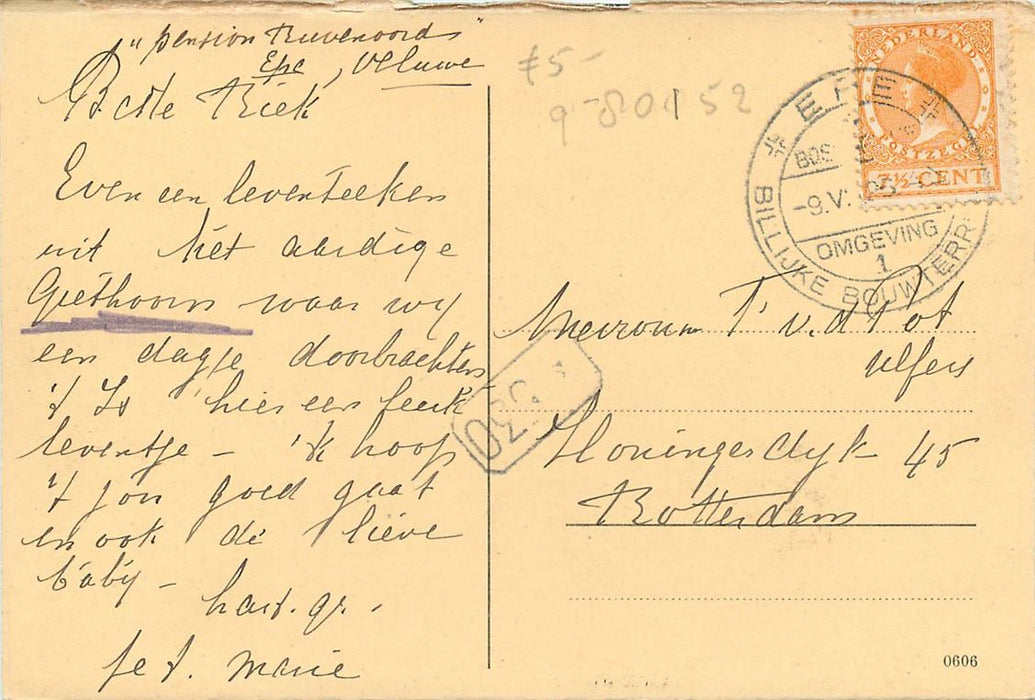 "pension
Epe, Veluwe
Beste Riek
Even een levensteeken
uit het aardige
Giethoorn waar wij
een dagje doorbrachten
't Is hier een leuk
leventje - 'k hoop
't jou goed gaat
en ook de lieve
baby -
hart. gr.
je t. Marie
£5-
9-80152
EPE
BOS
-9.V.
OMGEVING
1
BILLIJKE BOUWTERR
NEDERLAND
POSTZEGEL
7½ CENT
Mevrouw v.d. Pot
Ulfers
Honingerdijk 45
Rotterdam
0606